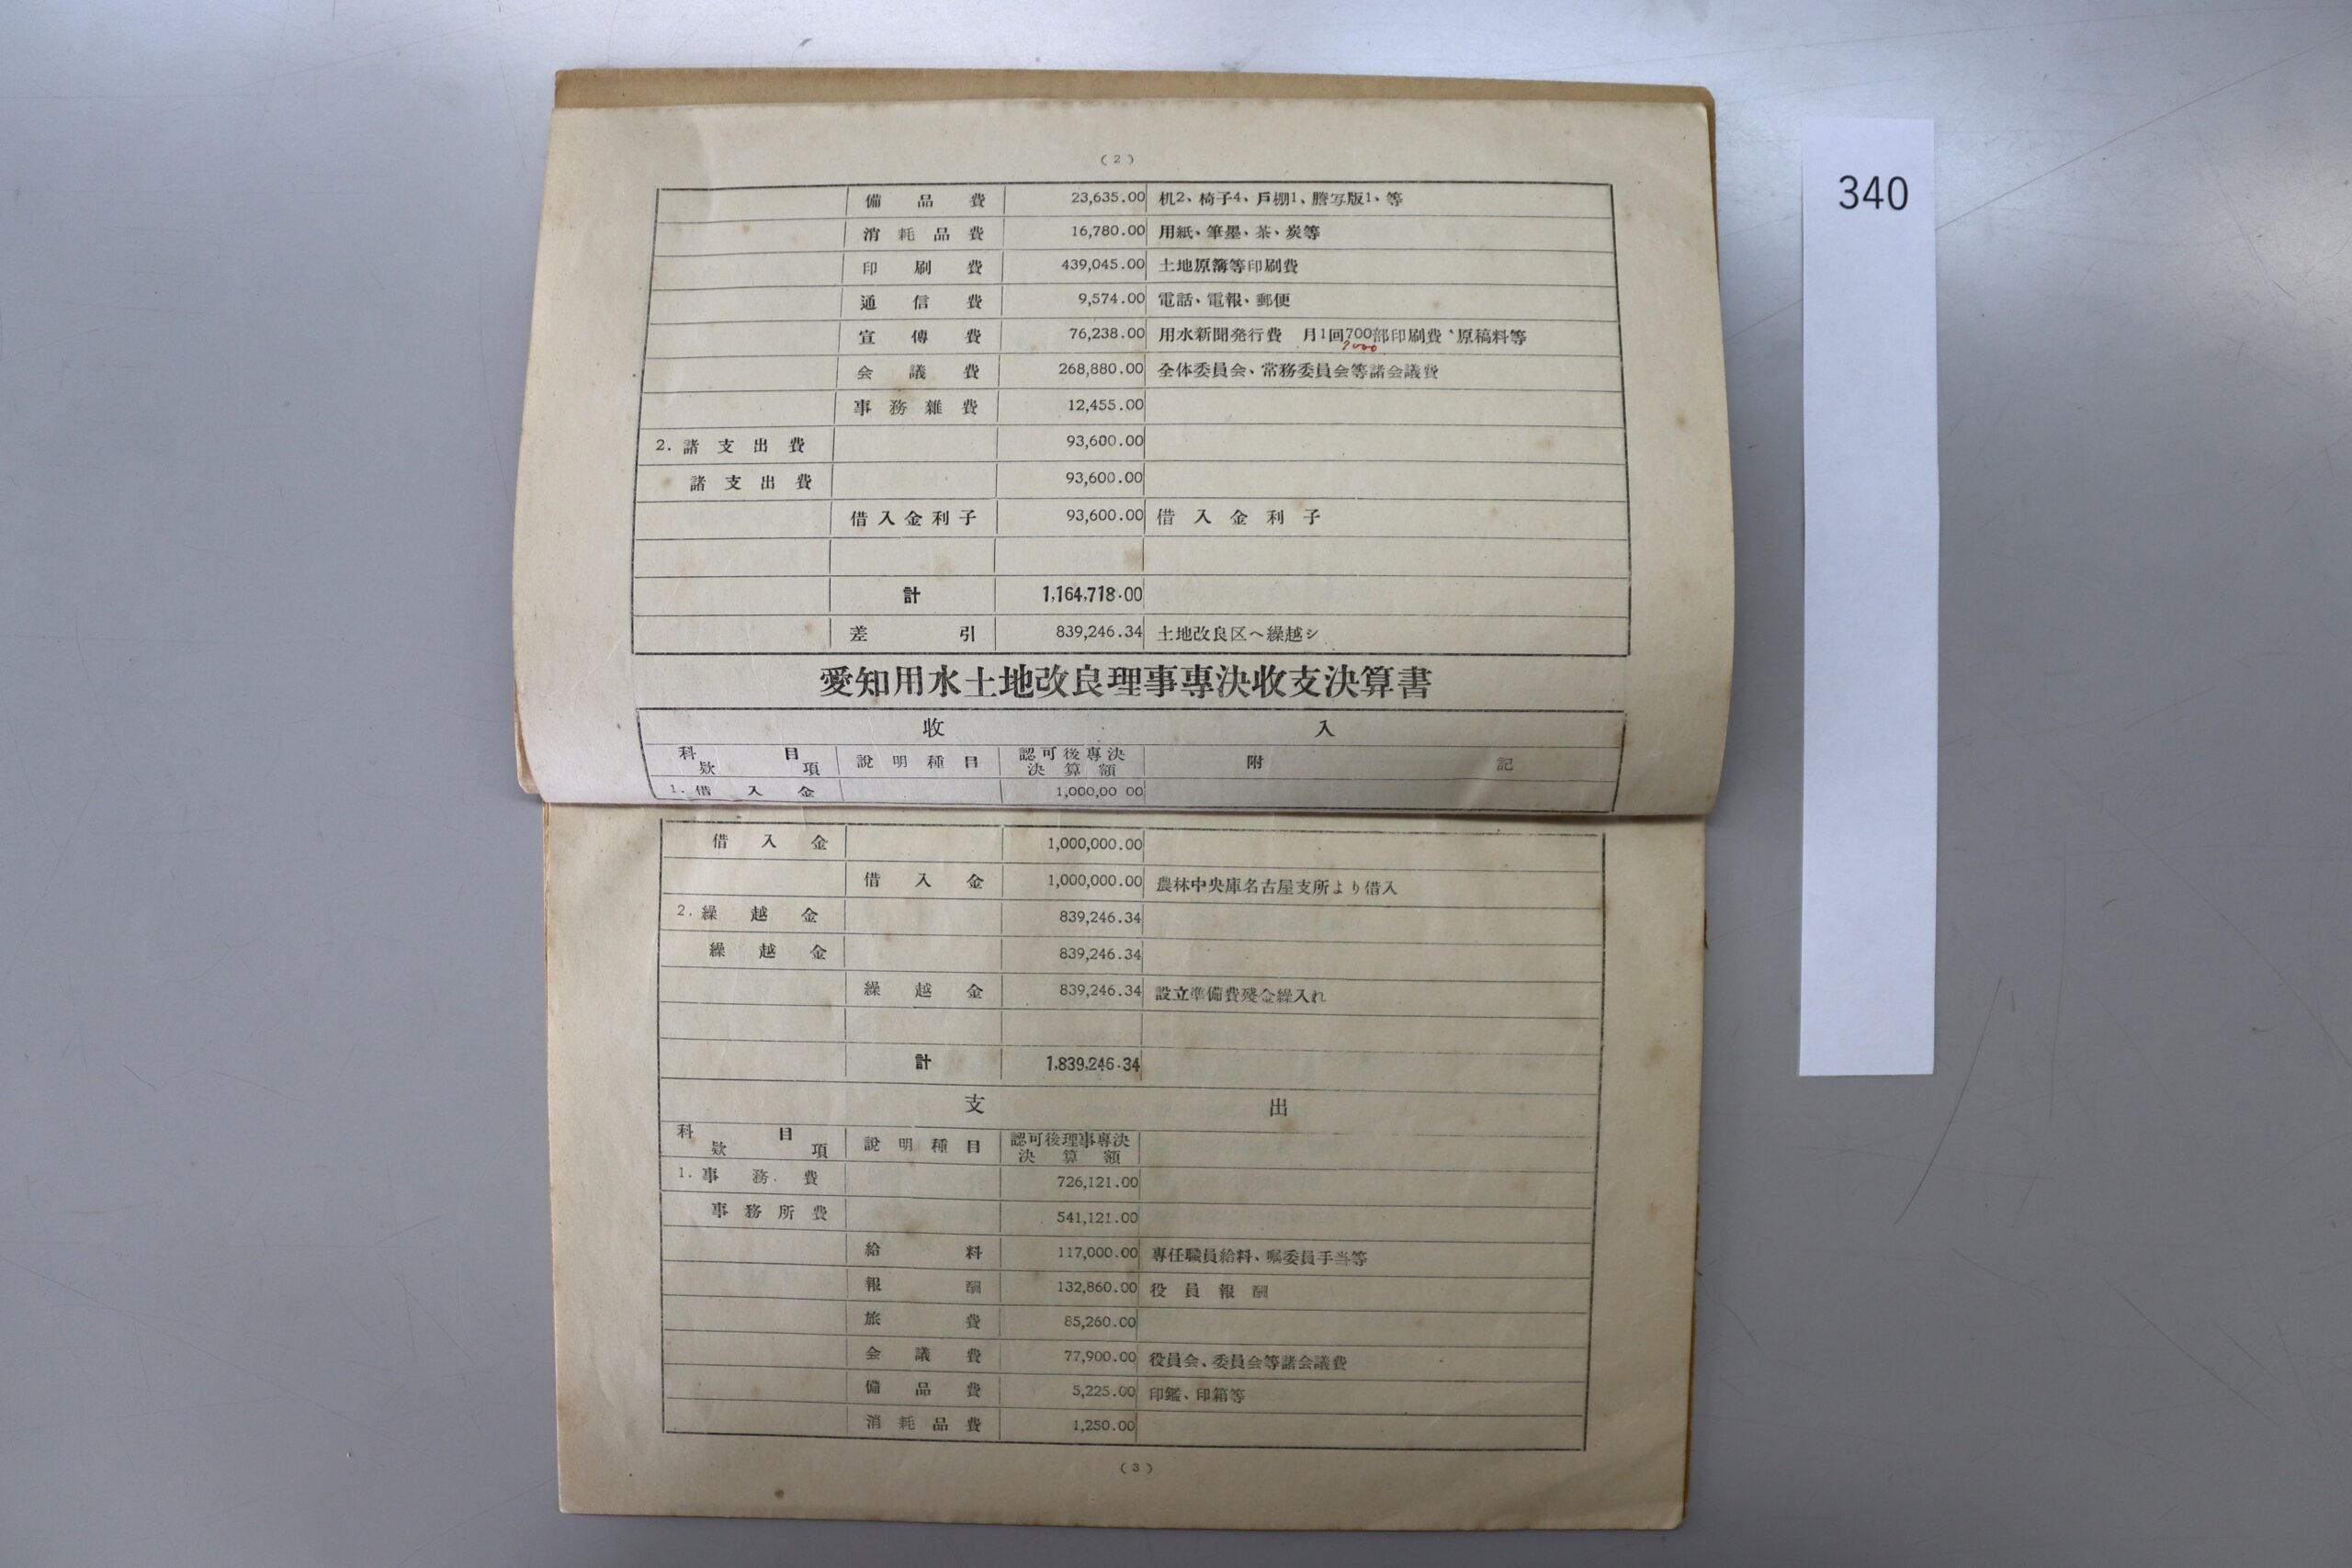 340
(2)
備品費 23,635.00 机2、椅子4、戸棚1、謄写版1、等
消耗品費 16,780.00 用紙、筆墨、茶、炭等
印刷費 439,045.00 土地原簿等印刷費
通信費 9,574.00 電話、電報、郵便
宣傳費 76,238.00 用水新聞発行費 月1回700部印刷費、原稿料等
会議費 268,880.00 全体委員会、常務委員会等諸会議費
事務雑費 12,455.00
2. 諸支出費 93,600.00
諸支出費 93,600.00
借入金利子 93,600.00 借入金利子
計 1,164,718.00
差引 839,246.34 土地改良区へ繰越シ
愛知用水土地改良理事專決収支決算書
収入
科目 欵項 說明種目 認可後專決決算額 附記
1. 借入金 1,000,00 00
借入金 1,000,000.00
借入金 1,000,000.00 農林中央庫名古屋支所より借入
2. 繰越金 839,246.34
繰越金 839,246.34
繰越金 839,246.34 設立準備費残金繰入れ
計 1,839,246.34
支出
科目 欵項 說明種目 認可後理事專決決算額
1. 事務費 726,121.00
事務所費 541,121.00
給料 117,000.00 專任職員給料、嘱委員手当等
報酬 132,860.00 役員報酬
旅費 85,260.00
会議費 77,900.00 役員会、委員会等諸会議費
備品費 5,225.00 印鑑、印箱等
消耗品費 1,250.00
(3)